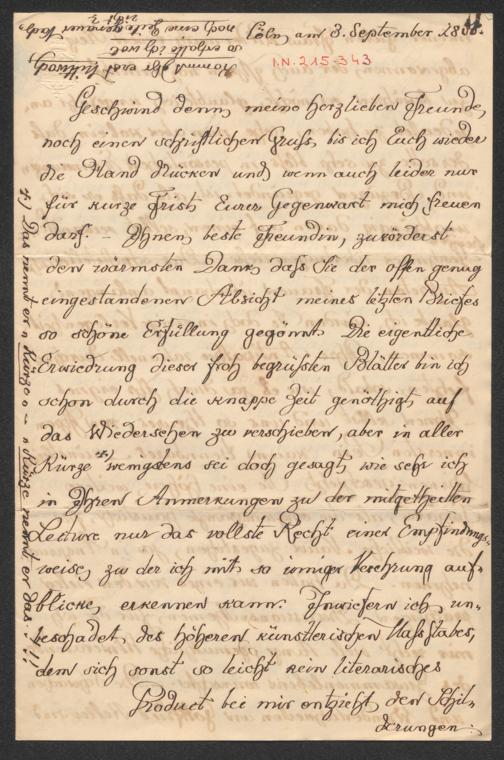 Cöln, am 3. September
I.N. 215343
Kommt Ihr erst Mittwoch,
so erhalte ich wol
noch eine Zeile
Geschwind denn, meine herzlieben Freunde,
noch einen schriftlichen Gruß, bis ich Euch wieder
die Hand drücken und, wenn auch leider nur
für kurze Frist, Eurer Gegenwart mich freuen
darf. – Ihnen, beste Freundin, zuvörderst
den wärmsten Dank, daß Sie der offen genug
eingestandenen Absicht meines letzten Briefes
so schöne Erfüllung gegönnt. Die eigentliche
Erwiedrung dieser froh begrüßten Blätter bin ich
schon durch die knappe Zeit genöthigt, auf
das Wiedersehen zu verschieben, aber in aller
Kürze *) wenigstens sei doch gesagt, wie sehr ich
in Ihren Anmerkungen zu der mitgetheilten
Lecture nur das vollste Recht einer Empfindungs-
weise, zu der ich mit so inniger Verehrung auf-
blicke, erkennen kann. Inwiefern ich, un-
beschadet des höheren künstlerischen Maßstabes,
dem sich sonst so leicht kein literarisches
Product bei mir entzieht, den Schil-
derungen
*) Das nennt er „Kürze" – „Kürze" nennt er das!!!